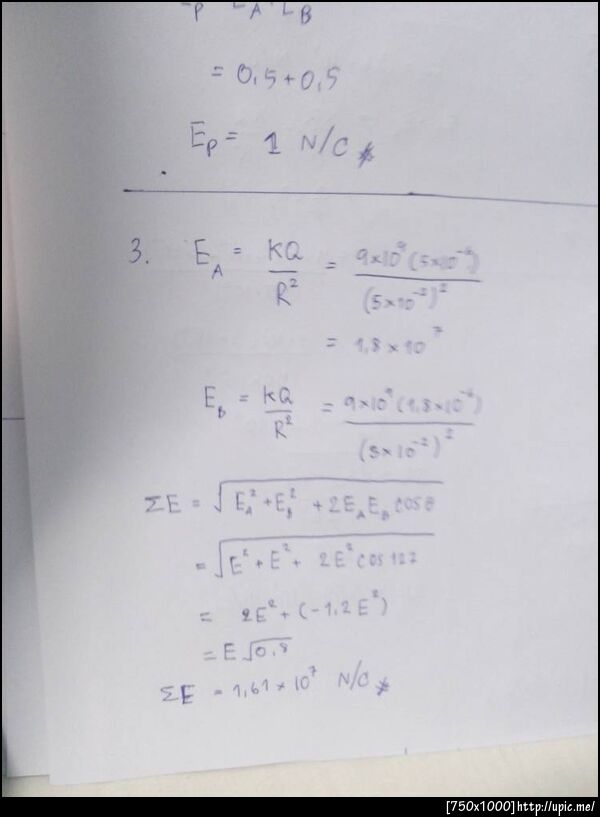 = 0,5+0,5
E_P = 1 N/C
3. E_A = KQ/R² = 9×10⁹(5×10⁻⁶)/(5×10⁻²)²
= 1,8×10⁷
E_B = KQ/R² = 9×10⁹(1.8×10⁻⁶)/(3×10⁻²)²
ΣE = √(E_A²+E_B² +2E_A E_B cosθ)
= √(E²+E²+ 2E² cos127)
= 2E²+(-1,2E²)
= E√0,8
ΣE = 1,61×10⁷ N/C
[750x1000]http://upic.me/